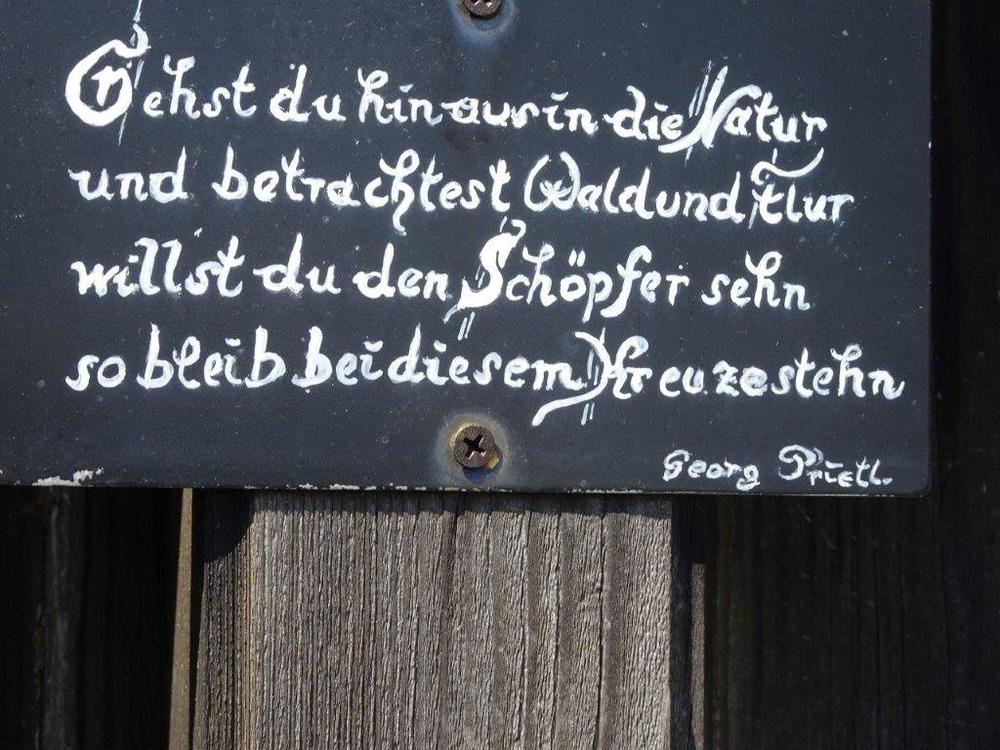 Gehst du hinaus in die Natur
und betrachtest Wald und Flur
willst du den Schöpfer sehn
so bleib bei diesem Kreuze stehn
Georg Prietl.